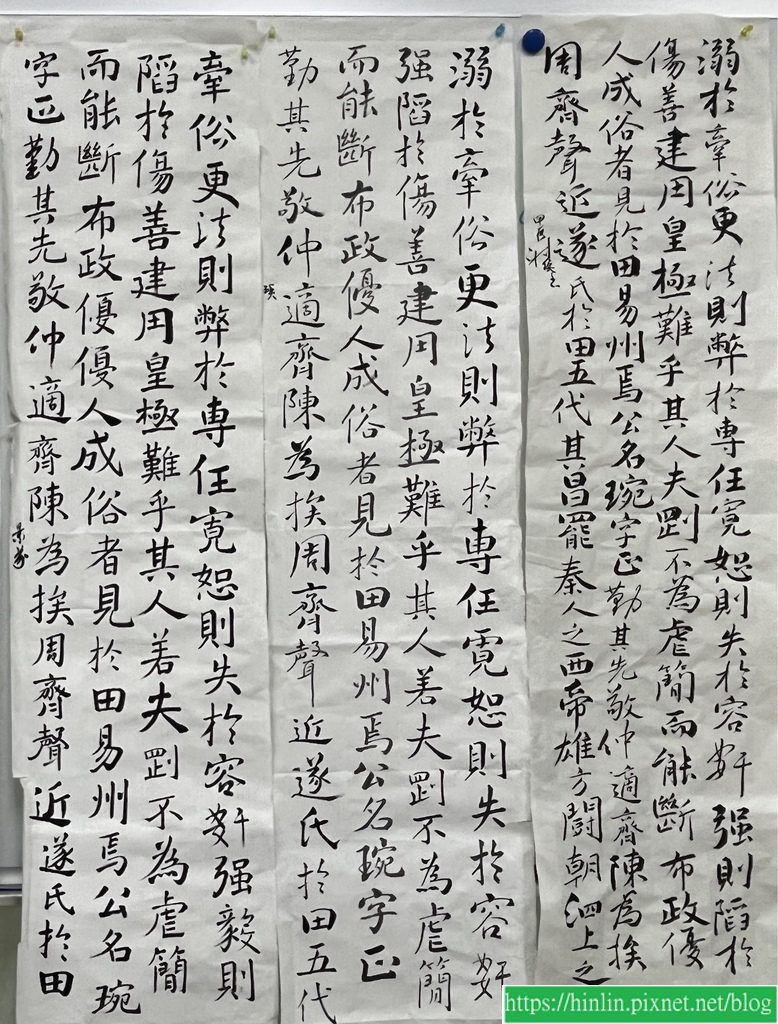 溺於牽俗更法則弊於專任寬恕則失於容奸强則陷於
傷善建用皇極難乎其人夫剛不為虐簡而能斷布政優
人成俗者見於田易州焉公名琬字正勤其先敬仲適齊陳為挨
周齊聲近遂氏於田五代其昌罷秦人之西帝雄方鬪朝泗上之
溺於牽俗更法則弊於專任寬恕則失於容奸
强陷於傷善建用皇極難乎其人若夫剛不為虐簡
而能斷布政優人成俗者見於田易州焉公名琬字正
勤其先敬仲適齊陳為挨周齊聲近遂氏於田五代
牽俗更法則弊於專任寬恕則失於容奸强毅則
陷於傷善建用皇極難乎其人若夫剛不為虐簡
而能斷布政優優人成俗者見於田易州焉公名琬
字正勤其先敬仲適齊陳為挨周齊聲近遂氏於田
https://hinlin.pixnet.net/blog